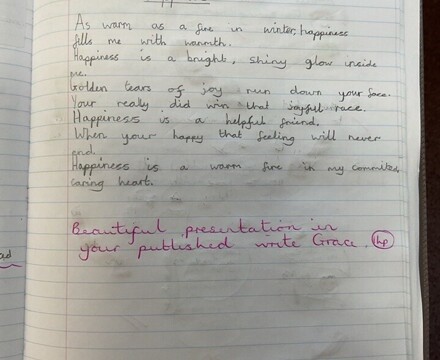 As warm as a fire in winter, happiness
fills me with warmth.
Happiness is a bright, shiny glow inside
me.
Golden tears of joy run down your face.
Your really did win that joyful race.
Happiness is a helpful friend.
When your happy that feeling will never
end.
Happiness is a warm fire in my committed,
caring heart.
Beautiful presentation in
your published write Grace. 1hp